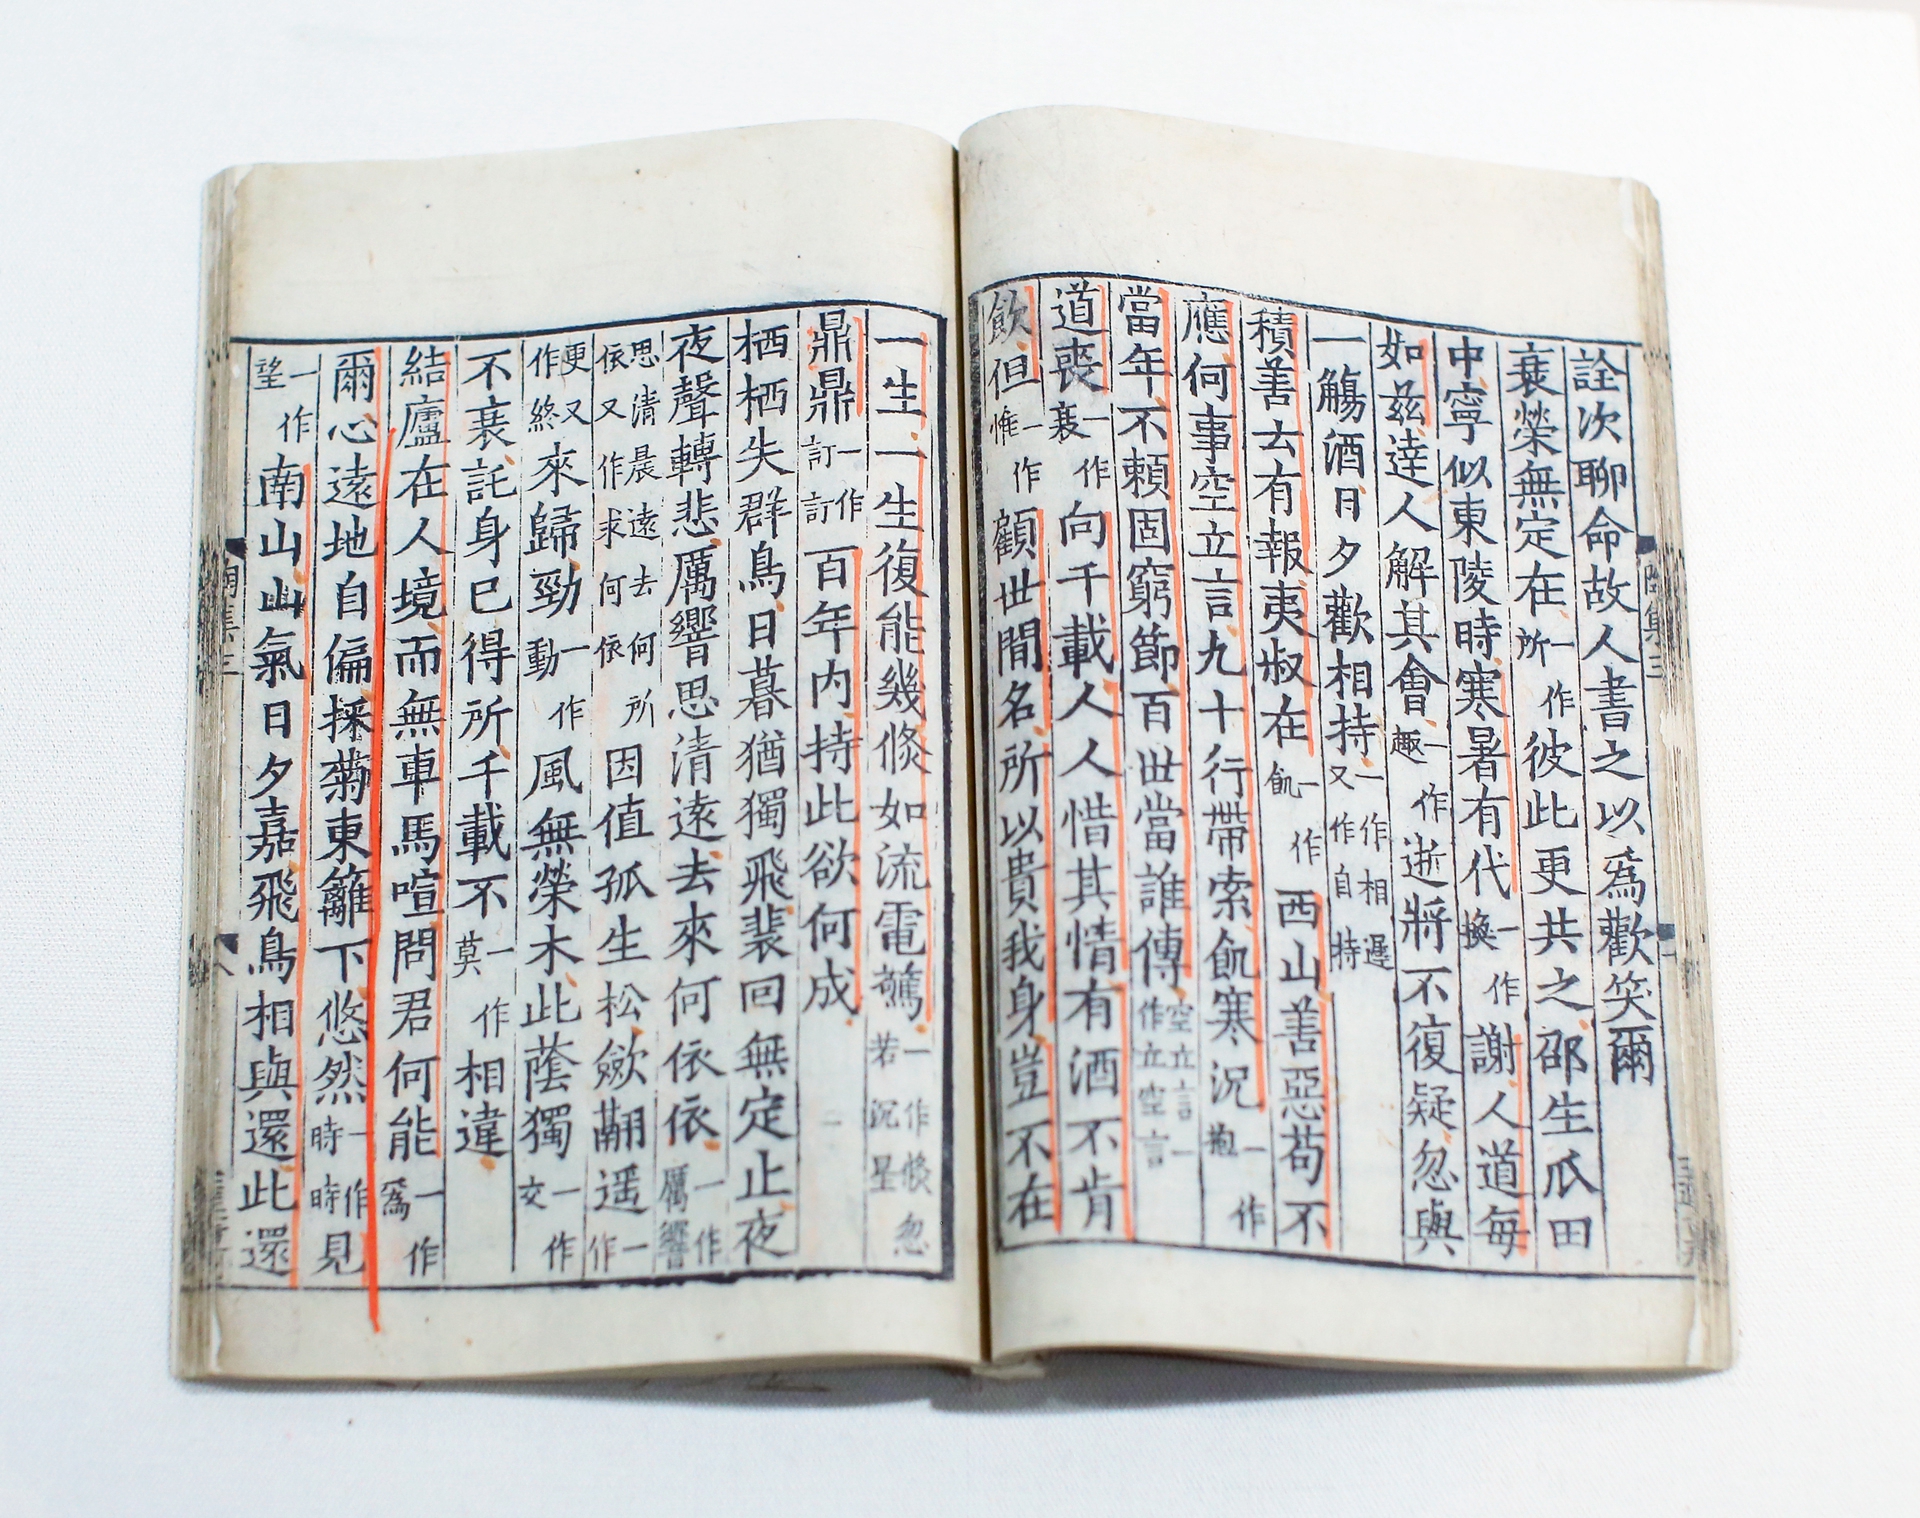 詮次聊命故人書之以為歡笑爾
衰榮無定在一作所彼此更共之邵生瓜田
中寧似東陵時寒暑有代一作換謝人道每
如茲達人解其會一作趣逝將不復疑忽與
一觴酒日夕歡相持一作相遲又作自持
積善云有報夷叔在一作飢西山善惡苟不
應何事空立言九十行帶索飢寒況一作抱
當年不賴固窮節百世當誰傳空立言一作立空言
道喪一作衰向千載人人惜其情有酒不肯
飲但一作惟顧世間名所以貴我身豈不在
一生一生復能幾倏如流電驚一作倏忽若沉星
鼎鼎一作訂訂百年內持此欲何成
栖栖失群鳥日暮猶獨飛裴回無定止夜
夜聲轉悲厲響思清遠去來何依依一作厲響
思清晨遠去何所依又作求何依因值孤生松歛翮遥一作
更又作終來歸勁一作動風無榮木此蔭獨一作交
不衰託身已得所千載不一作莫相違
結廬在人境而無車馬喧問君何能一作為
爾心遠地自偏採菊東籬下悠然一作時時見
一作望南山山氣日夕嘉飛鳥相與還此還
陶集三